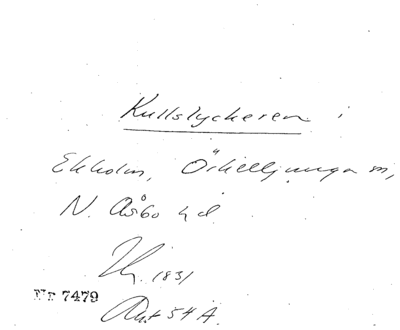 Kullslyckeren i
Ekholm, Örkelljunga m,
N. Åsbo hd
1831
Nr 7479
54 A.